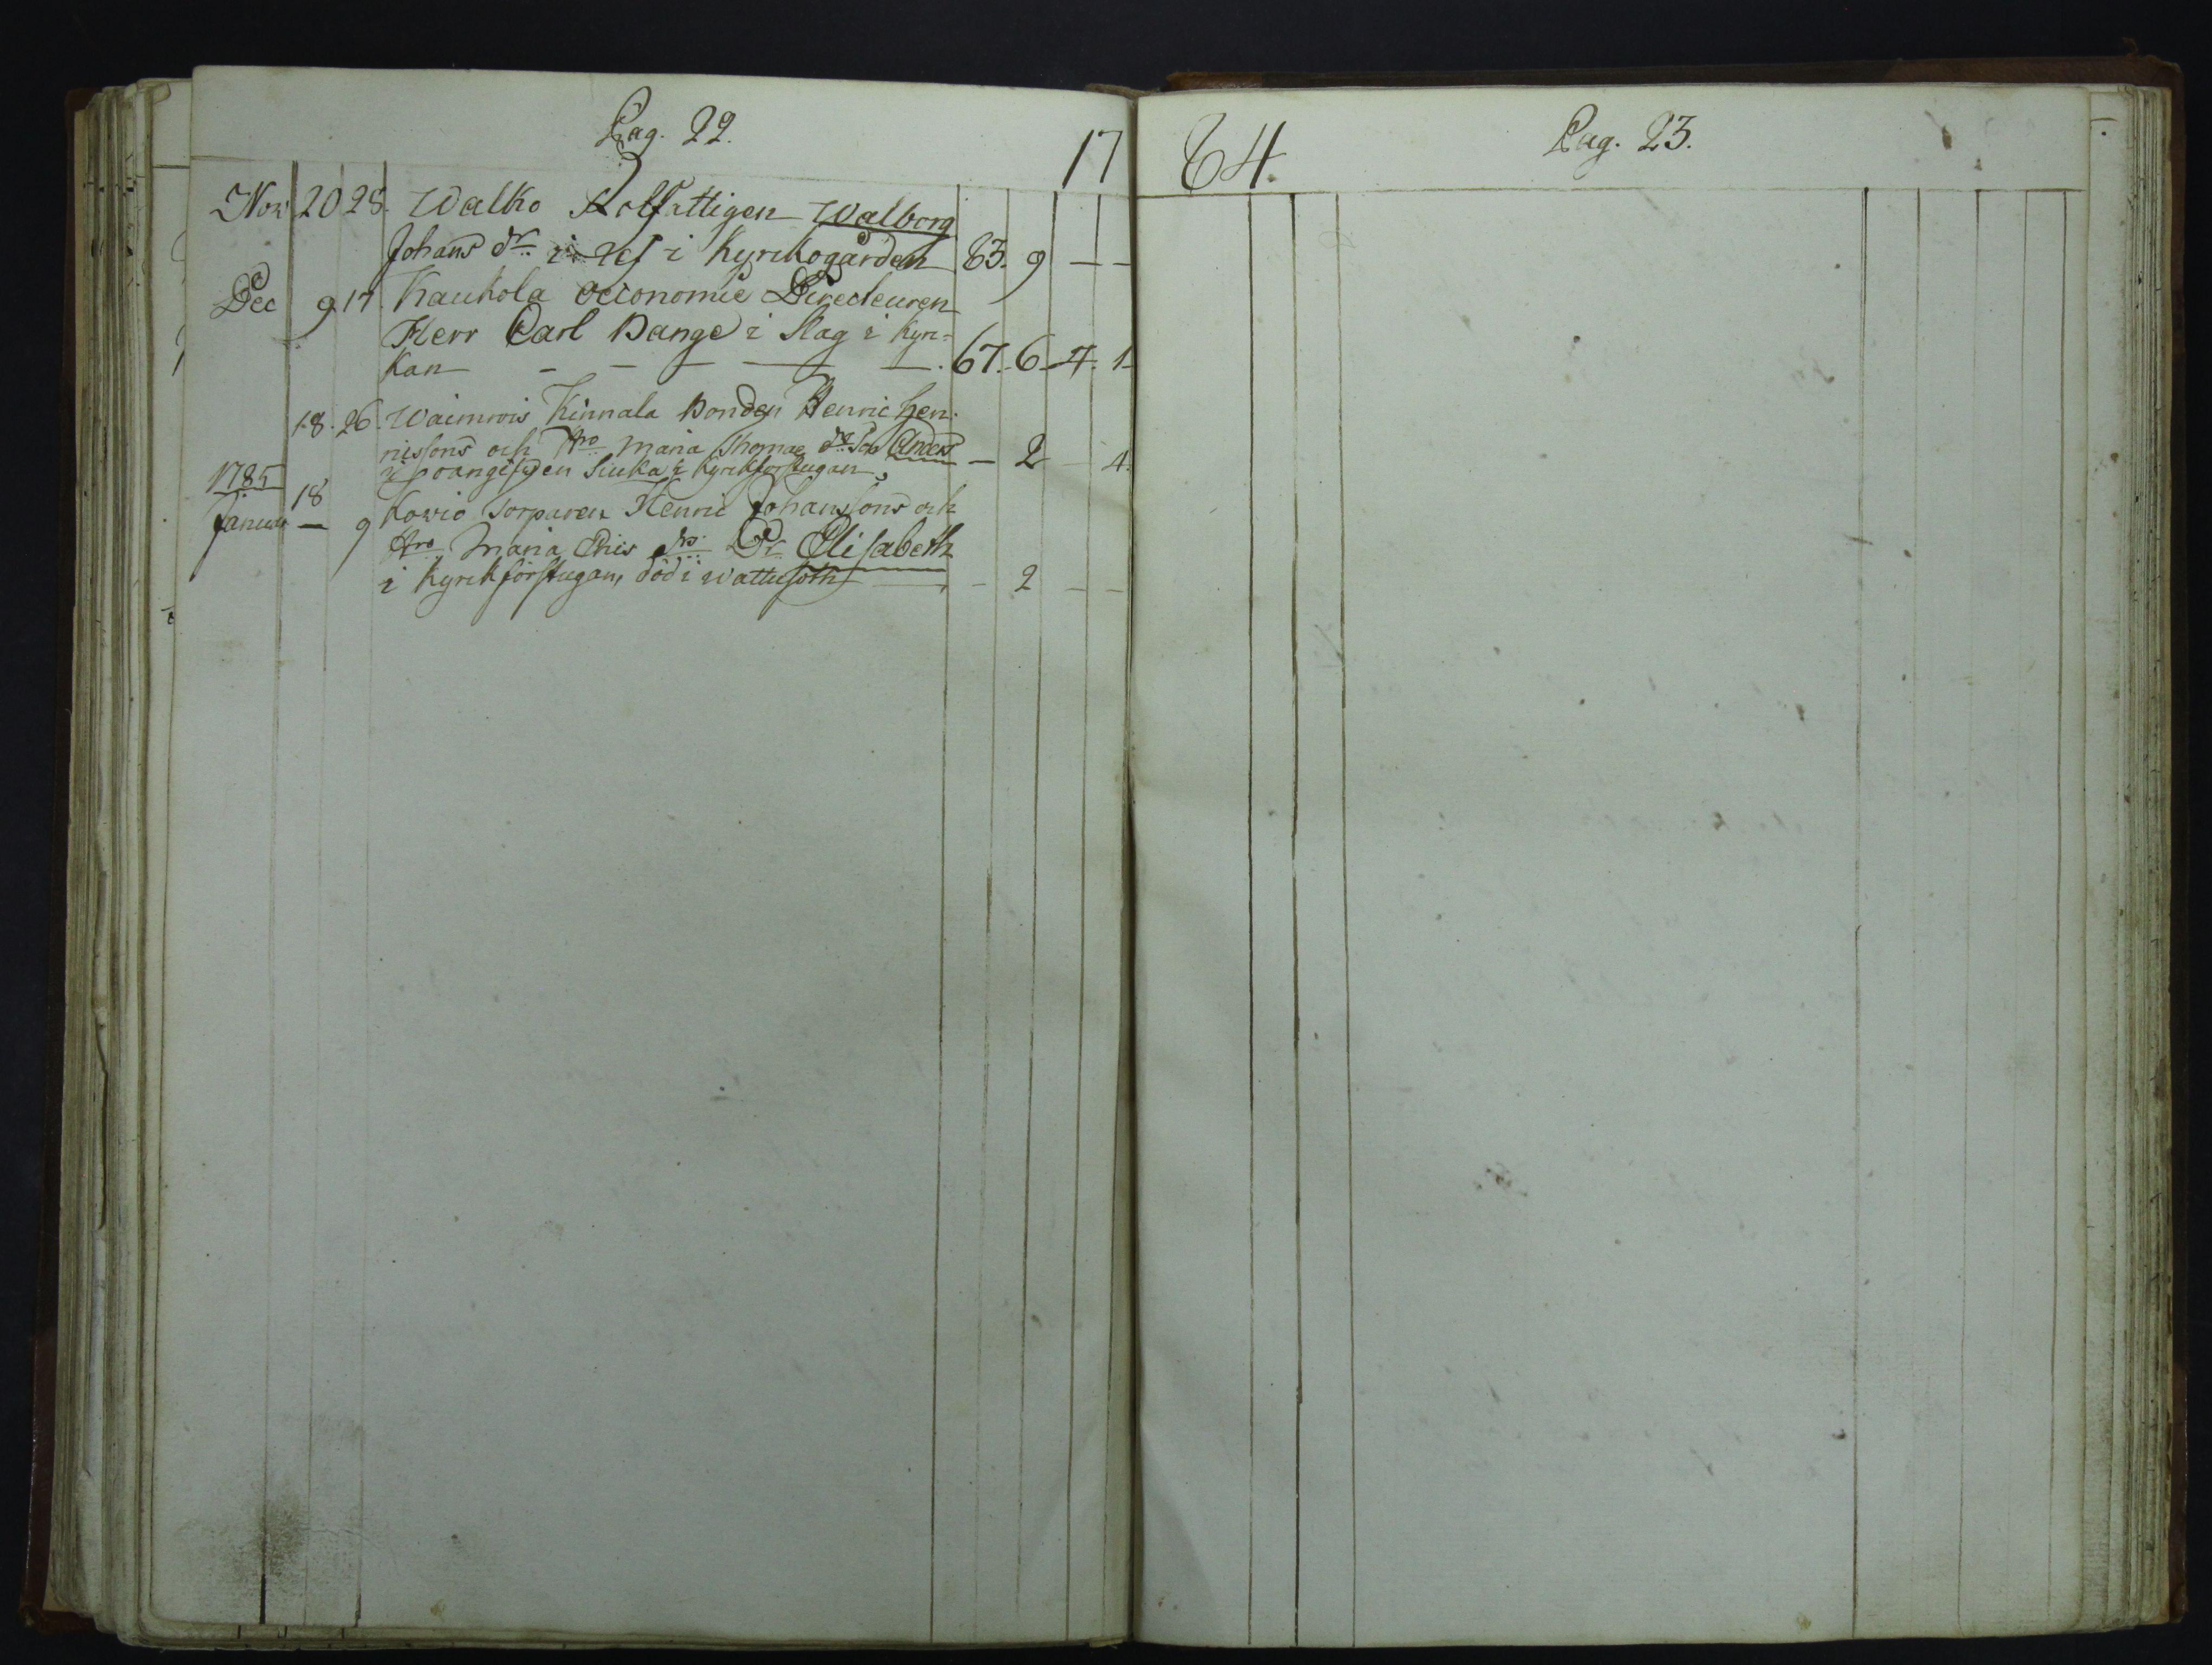 Pag. 22.
17
Nov 20 28. Walko Rotfattigen Walborg
Johans dr. i i Kyrckogården 83. 9 — —
Dec 9 17. Kaukola Oeconomie Directeuren
Herr Carl Bange i slag i Kyrc=
kan — — — — — . 67. 6. 4. 1
18. 26. Waimrois Kinnala Bonden Henric Hen-
ricssons och Hro Maria Thomae dr. Son Anders
i Siuka i Kyrckförstugan. — 2 — 4.
1785
Januar 18 — 9 Torparen Henric Johanssons och
Hro Maria dr. Dr. Elisabeth
i Kyrckförstugan, död i wattusoth — — 2 — —
84.
Pag. 23.